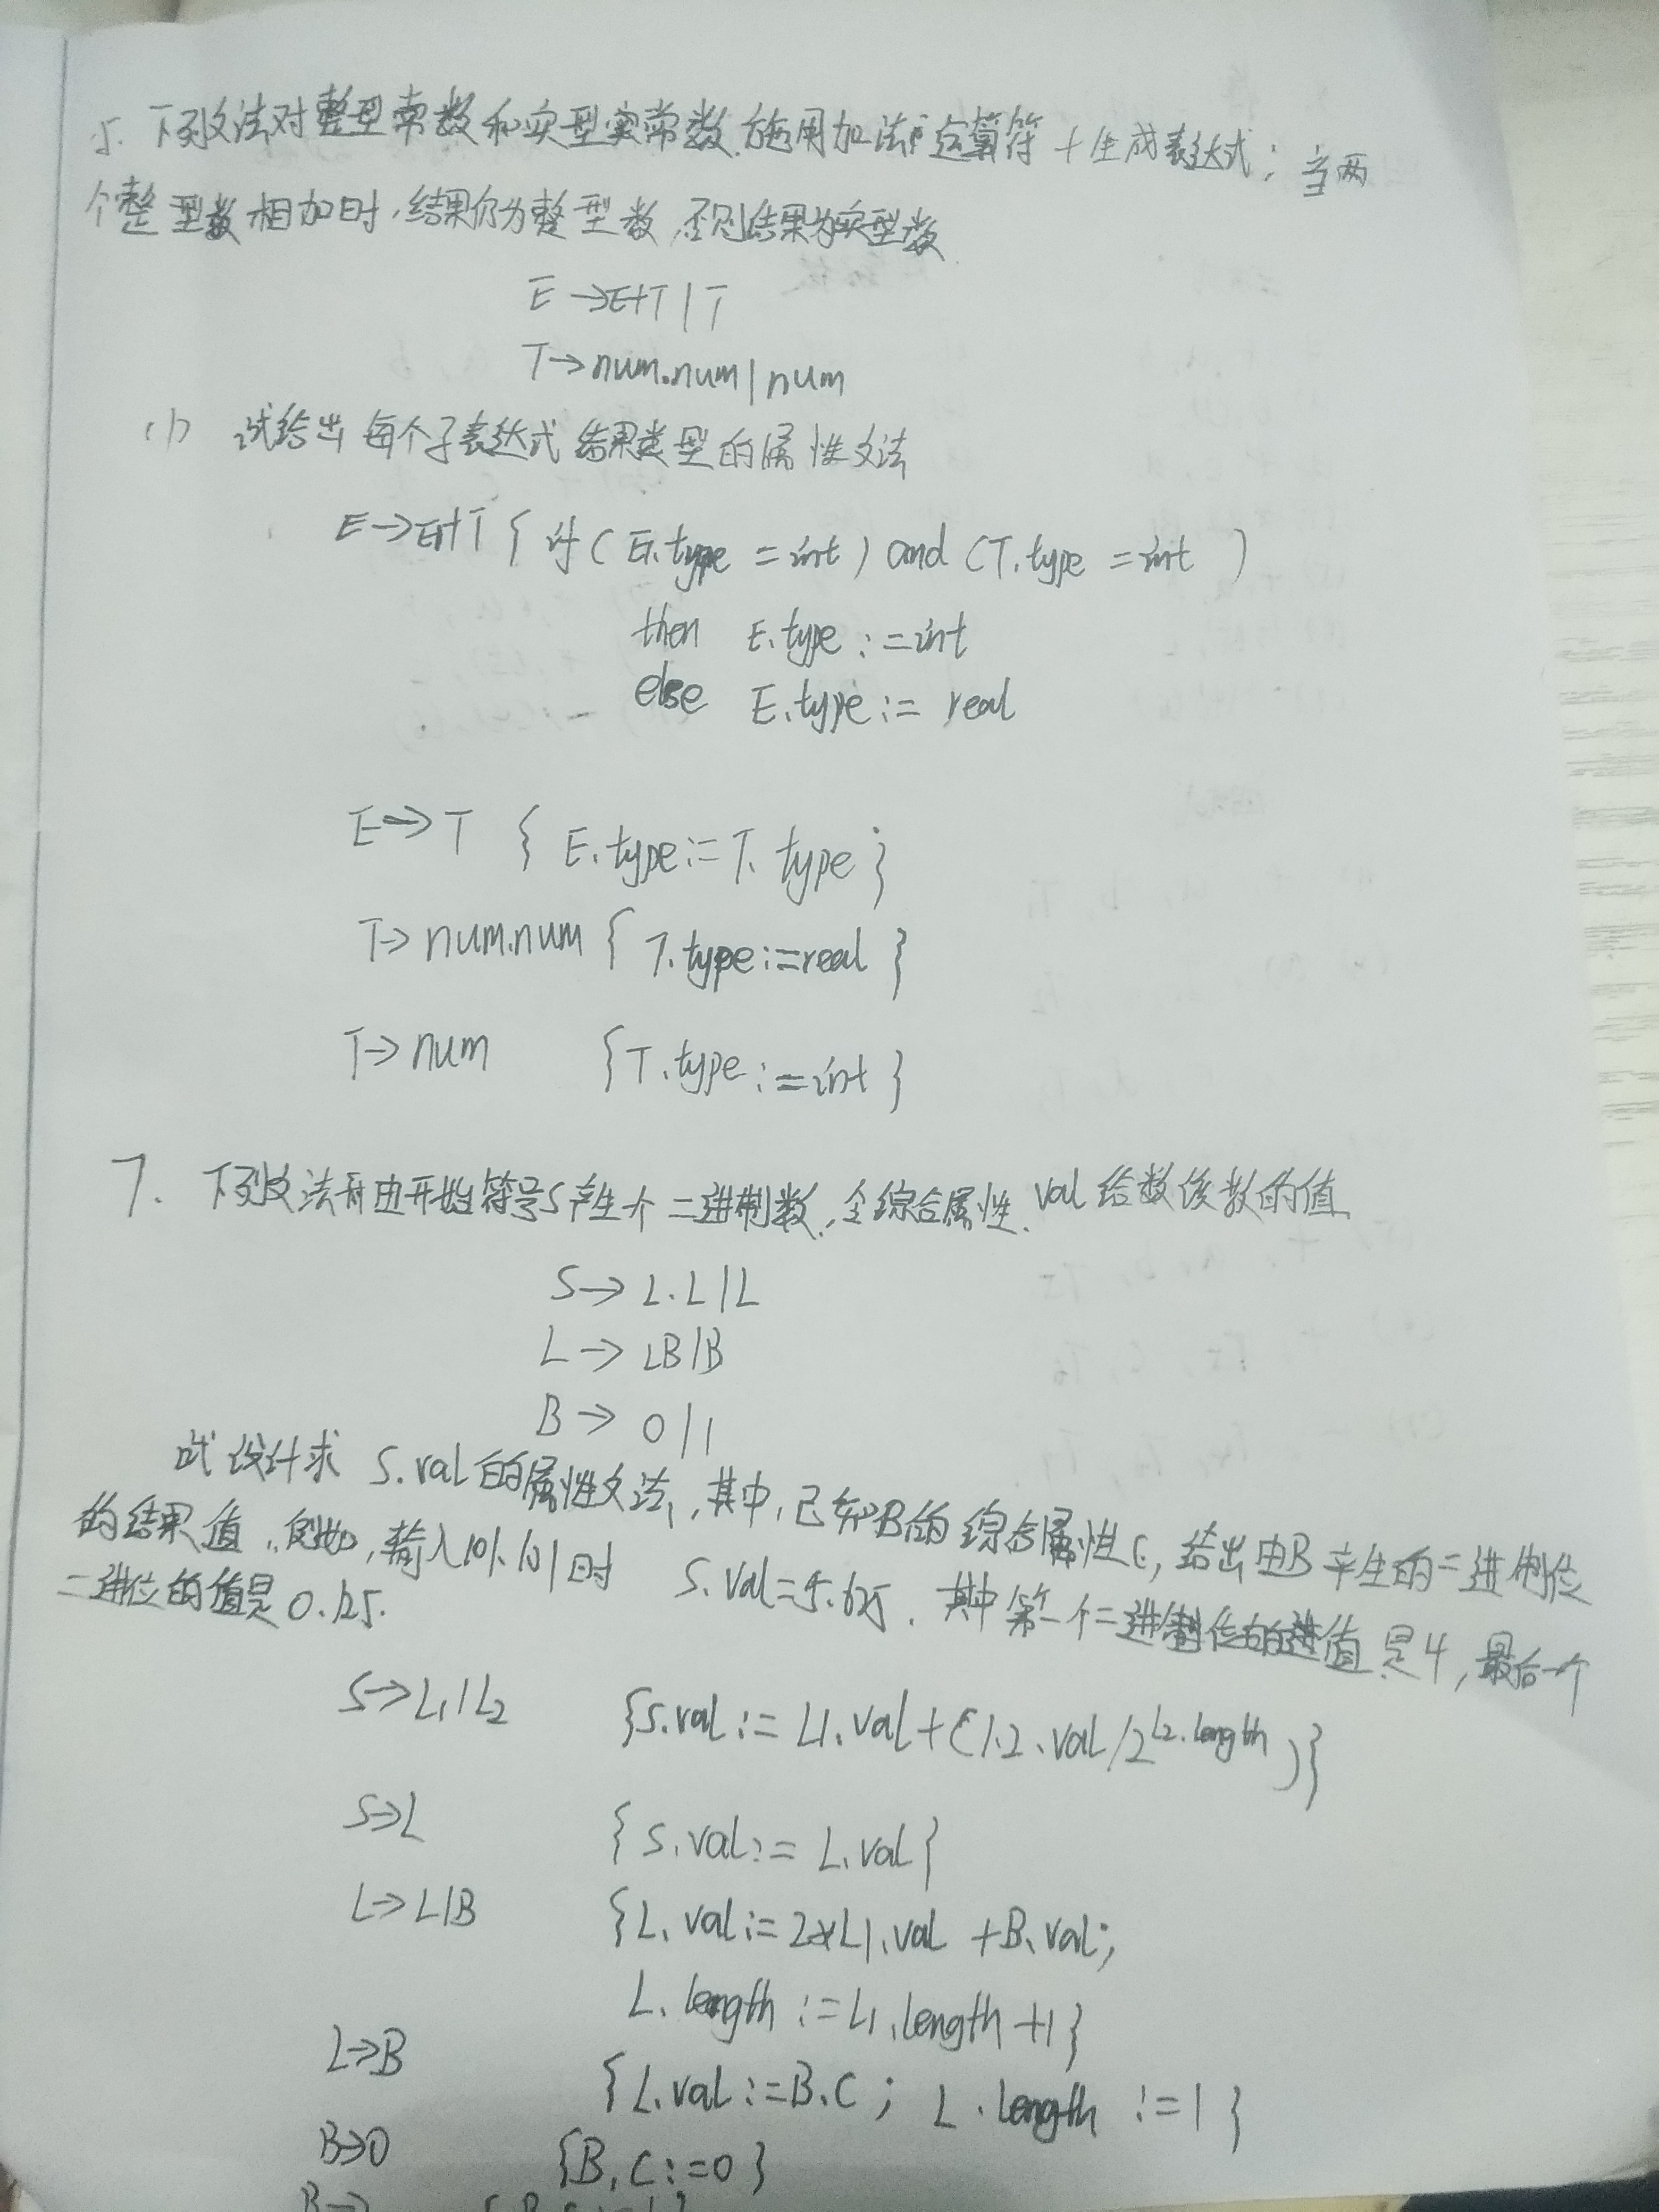 5. 下列文法对整型常数和实型实常数施用加法运算符+生成表达式;当两
个整型数相加时,结果仍为整型数,否则结果为实型数
E→E+T|T
T→num.num|num
(1) 试给出每个子表达式结果类型的属性文法
E→E1+T { if (E1.type = int) and (T.type = int)
then E.type := int
else E.type := real
E→T { E.type := T.type }
T→num.num { T.type := real }
T→num { T.type := int }
7. 下列文法由开始符号S产生个二进制数,令综合属性val给数该数的值
S→L.L|L
L→LB|B
B→0|1
试设计求S.val的属性文法,其中,已知B的综合属性c,给出由B产生的二进制位
的结果值,例如,输入101.101时 S.val=5.625.其中第一个二进制位的值是4,最后一个
二进位的值是0.125.
S→L1.L2 {S.val := L1.val+(L2.val/2^L2.length)}
S→L {S.val := L.val}
L→L1B {L.val := 2*L1.val+B.val;
L.length := L1.length+1}
L→B {L.val := B.C; L.length := 1}
B→0 {B.C := 0}
B→